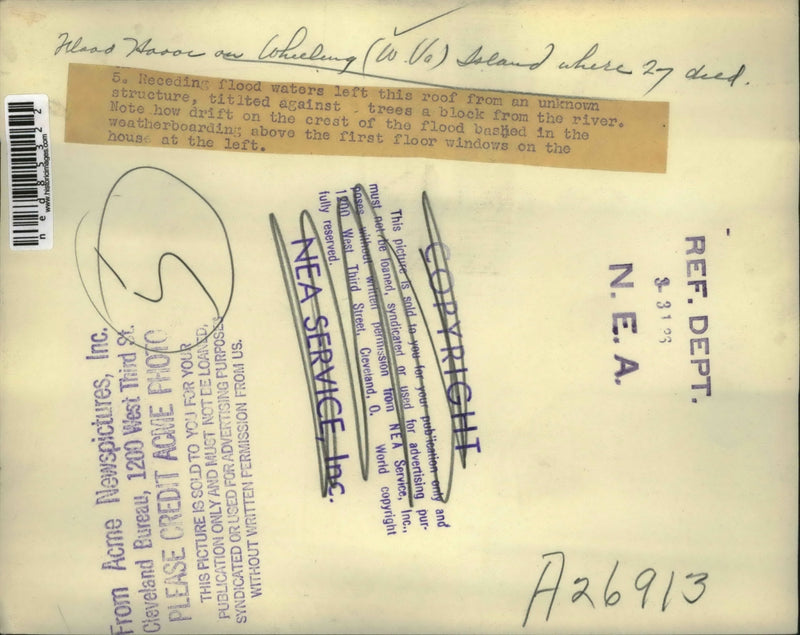 Flood Havoc on Wheeling (W. Va) Island where 27 died.
5. Receding flood waters left this roof from an unknown
structure, titlted against trees a block from the river.
Note how drift on the crest of the flood bashed in the
weatherboarding above the first floor windows on the
house at the left.
ned85322
www.historicimages.com
5
COPYRIGHT
This picture is sold to you for your publication only and
must not be loaned, syndicated or used for advertising pur-
poses without written permission from NEA Service, Inc.,
1200 West Third Street, Cleveland, O. World copyright
fully reserved.
NEA SERVICE, Inc.
REF. DEPT.
3-31 36
N. E. A.
From Acme Newspictures, Inc.
Cleveland Bureau, 1200 West Third St.
PLEASE CREDIT ACME PHOTO
THIS PICTURE IS SOLD TO YOU FOR YOUR
PUBLICATION ONLY AND MUST NOT BE LOANED,
SYNDICATED OR USED FOR ADVERTISING PURPOSES
WITHOUT WRITTEN PERMISSION FROM US.
A26913